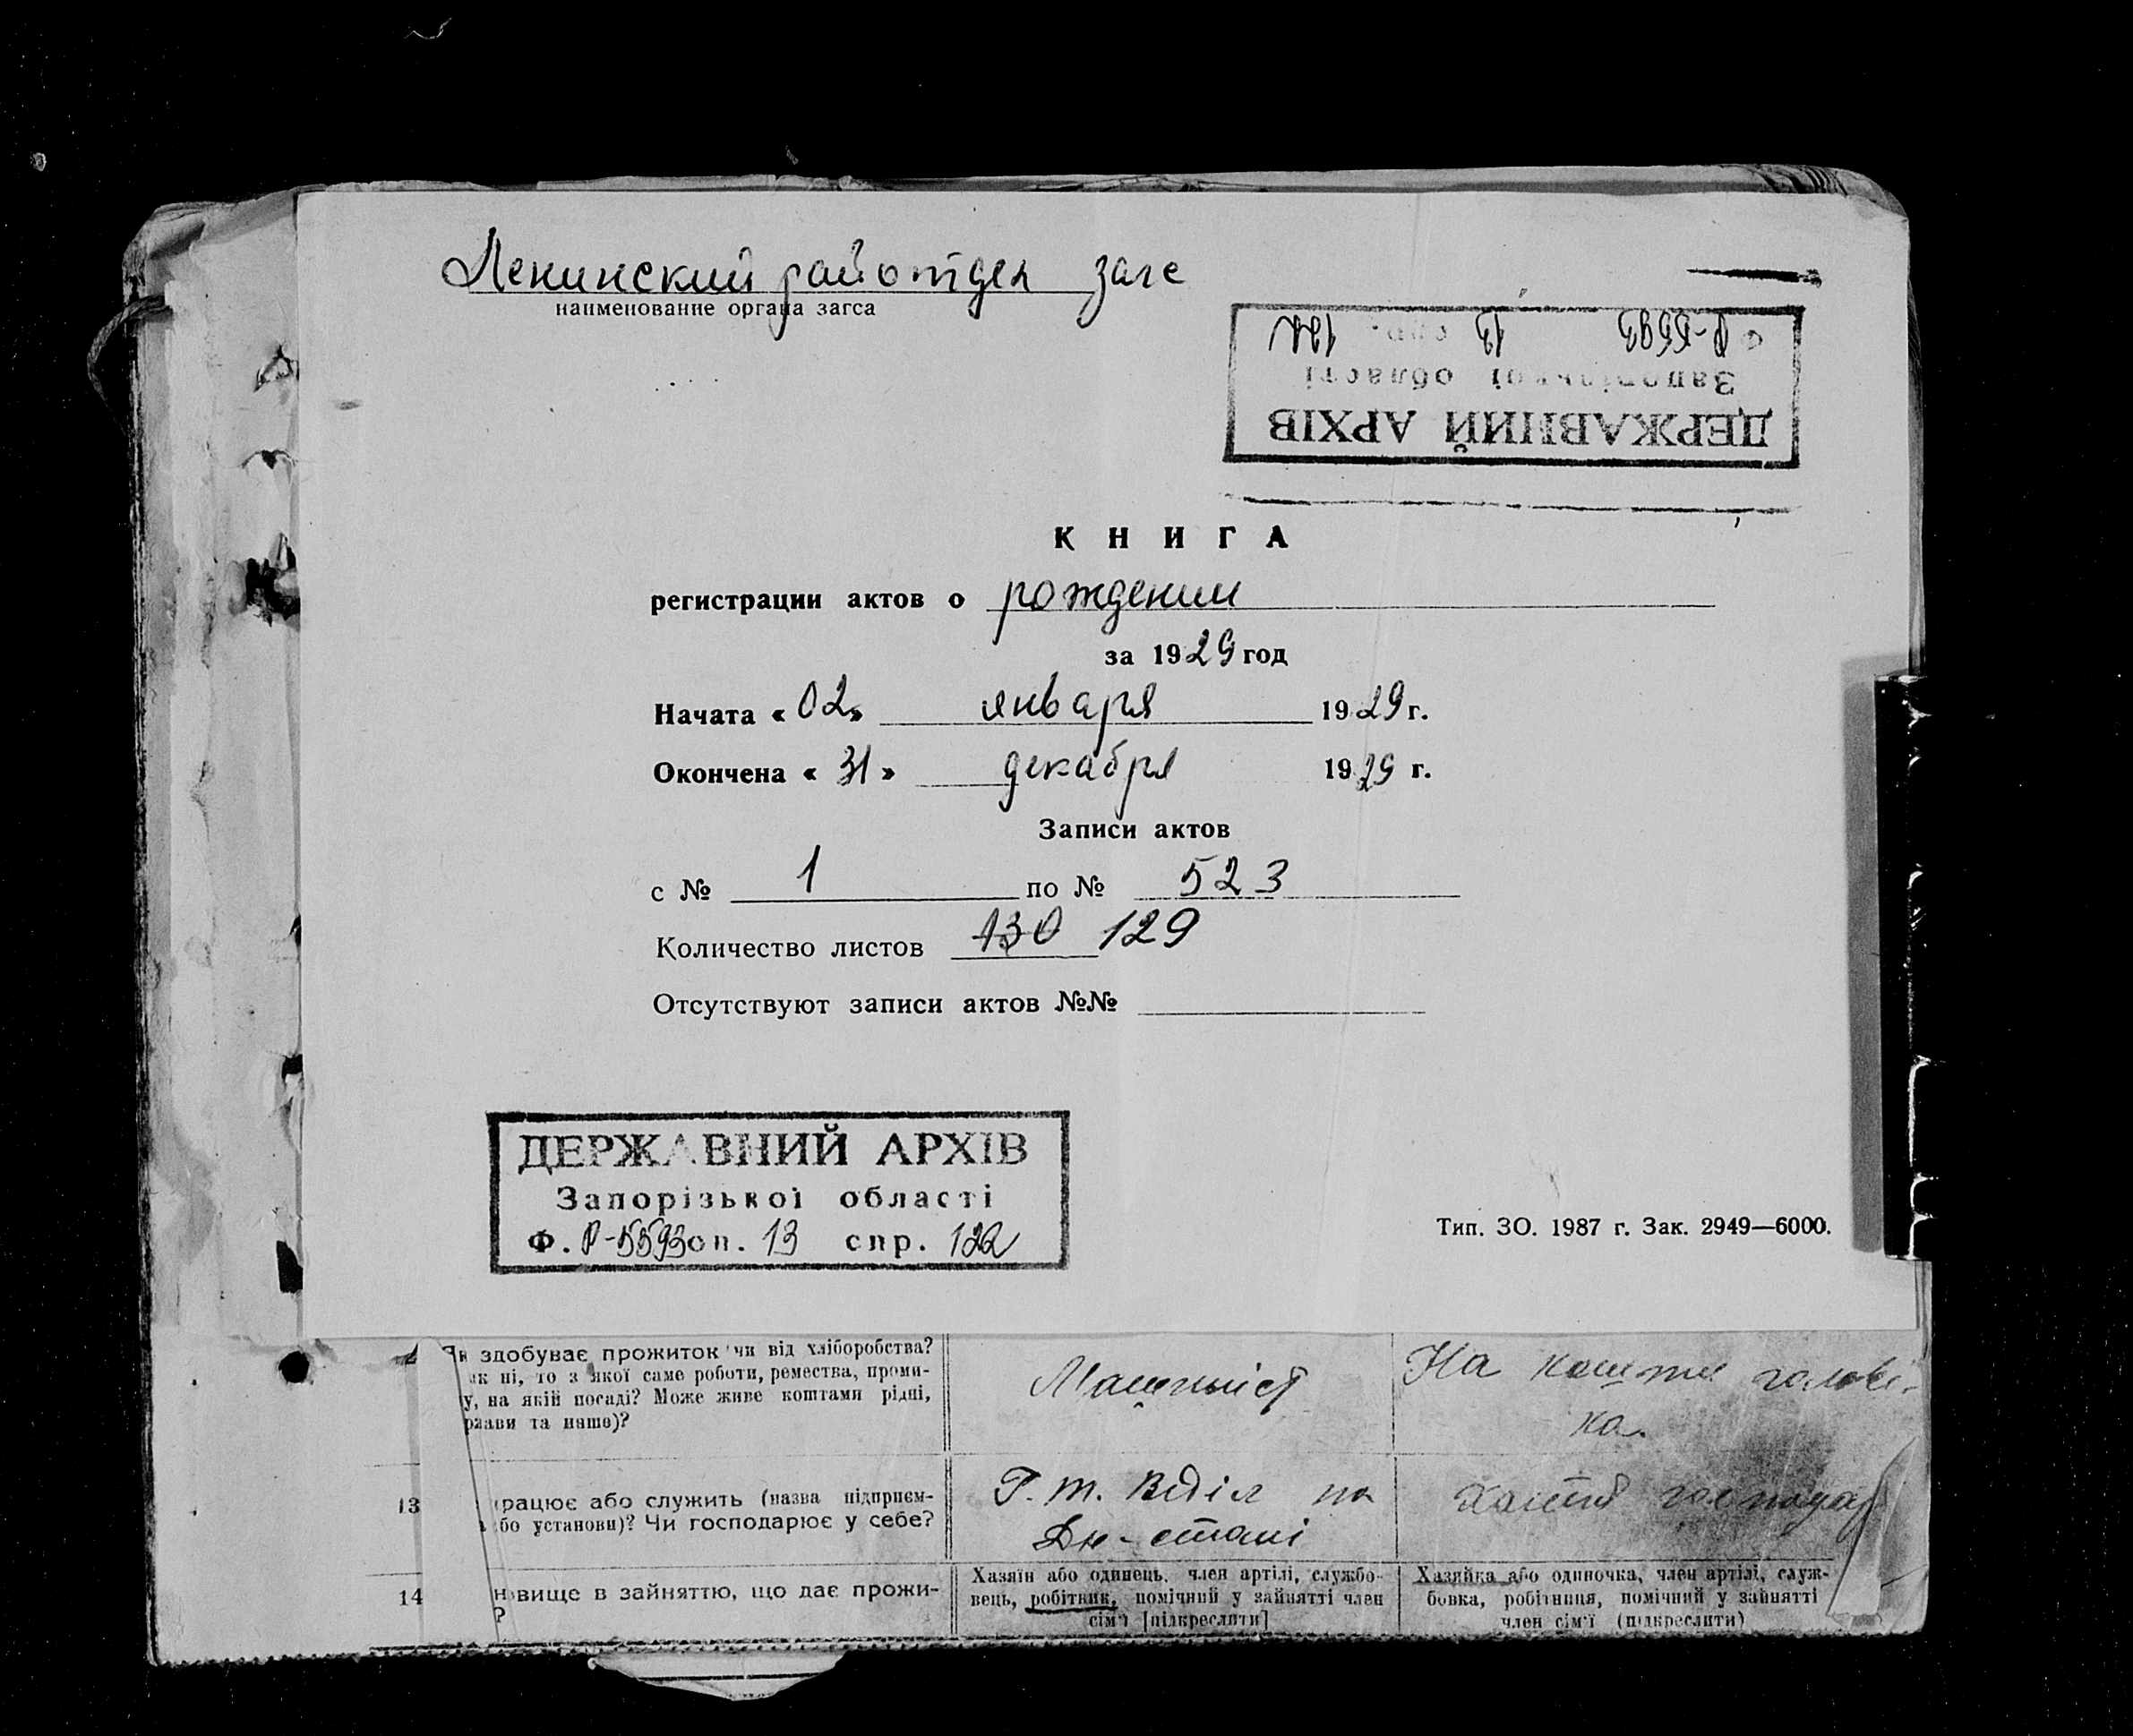 Ленинский райотдел загс
наименование органа загса
ДЕРЖАВНИЙ АРХІВ
Запорізької області
Р-5593 13 спр. 122
КНИГА
регистрации актов о рождении
за 1929 год
Начата «02» января 1929 г.
Окончена «31» декабря 1929 г.
Записи актов
с № 1 по № 523
Количество листов 130 129
Отсутствуют записи актов №№
ДЕРЖАВНИЙ АРХІВ
Запорізької області
Ф. Р-5593 оп. 13 спр. 122
Тип. ЗО. 1987 г. Зак. 2949—6000.
здобуває прожиток чи від хліборобства?
ні, то з якої саме роботи, ремества, проми-
у, на якій посаді? Може живе коштами рідні,
та инше)?
Машиніст
На кошти чолові-
ка.
13
рацює або служить (назва підприєм-
бо установи)? Чи господарює у себе?
Р. т. Відділ на
Дн-стані
14
вище в зайняттю, що дає прожи-
?
Хазяїн або одинець, член артілі, службо-
вець, робітник, помічний у зайнятті член
сім'ї [підкреслити]
Хазяйка або одиночка, член артілі, служ-
бовка, робітниця, помічний у зайнятті
член сім'ї (підкреслити)